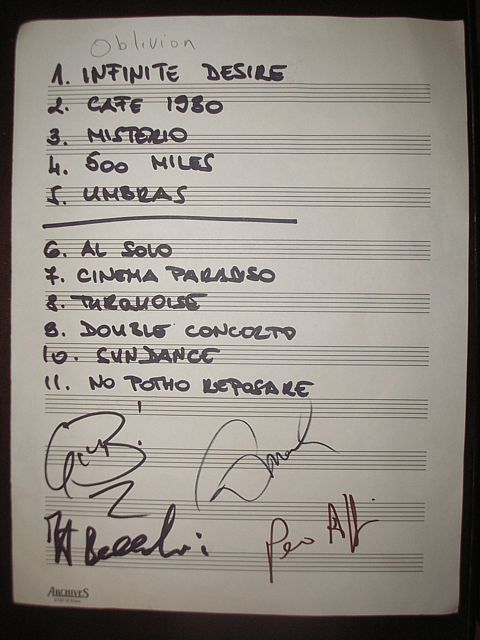 Oblivion
1. INFINITE DESIRE
2. CAFE 1930
3. MISTERIO
4. 500 MILES
5. UMBRAS
6. AL SOLO
7. CINEMA PARADISO
8. TURQUOISE
9. DOUBLE CONCERTO
10. SUNDANCE
11. NO POTHO REPOSARE
ARCHIVES